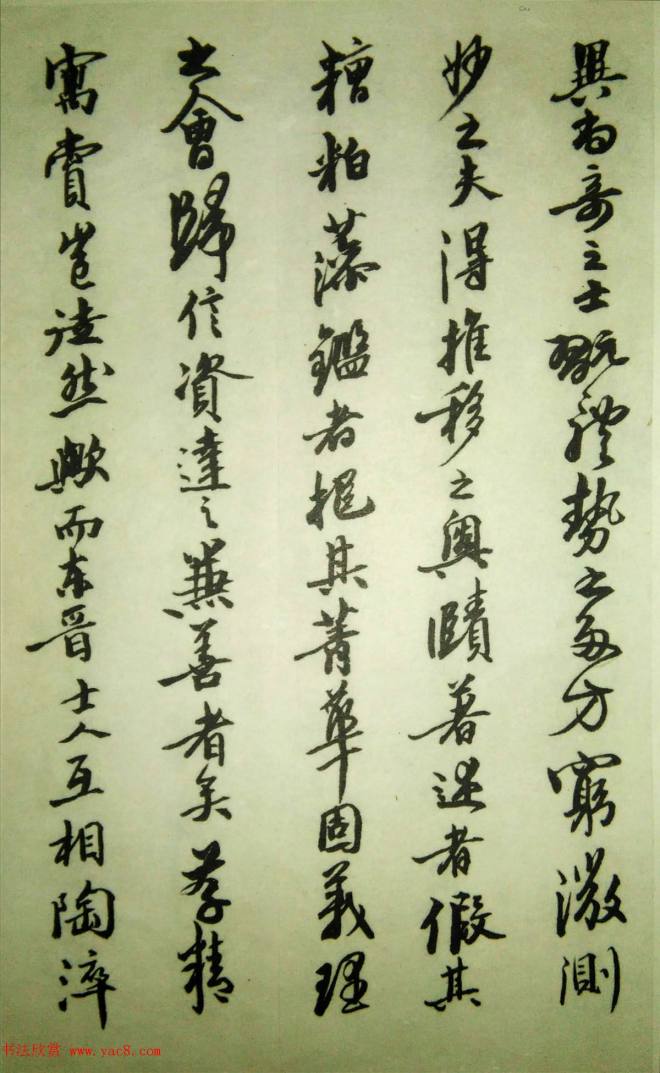 異尚奇之士翫體勢之多方窮微測
妙之夫得推移之奧賾著述者假其
糟粕藻鑑者挹其菁華固義理
之會歸信資達之兼善者矣存精
寓賞豈徒然歟而東晉士人互相陶淬
书法欣赏 www.yac8.com